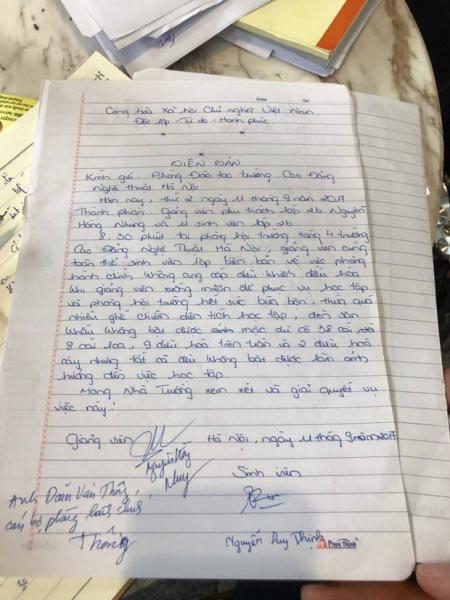 Date No
Cộng hòa xã hội Chủ nghĩa Việt Nam
Độc lập - Tự do - Hạnh phúc
BIÊN BẢN
Kính gửi: Phòng Đào tạo trường Cao Đẳng
Nghệ thuật Hà Nội
Hôm nay, thứ 2 ngày 11 tháng 9 năm 2017
Thành phần: Giảng viên phụ trách lớp 2b Nguyễn
Hồng Nhung và 11 sinh viên lớp 2b
8h30 phút tại phòng hội trường tầng 4 trường
Cao Đẳng Nghệ Thuật Hà Nội, giảng viên cùng
toàn thể sinh viên lập biên bản về việc phòng
hành chính không cung cấp điều khiển điều hòa
khi giảng viên xuống mượn để phục vụ học tập
và phòng hội trường hết sức bừa bộn, thừa quá
nhiều ghế chiếm diện tích học tập, đèn sân
khấu không bật được mặc dù có 38 cái
8 cái loa, 9 điều hòa trên trần và 2 điều hòa
cây nhưng tất cả đều không bật được làm ảnh
hưởng đến việc học tập.
Mong Nhà Trường xem xét và giải quyết vụ
việc này!
Giảng viên Hà Nội, ngày 11 tháng 9 năm 2017
Nguyễn Hồng
Nhung
Sinh viên
Anh Đoàn Văn Thông,
cán bộ phòng hành chính
Thông
Nguyễn Duy Thịnh